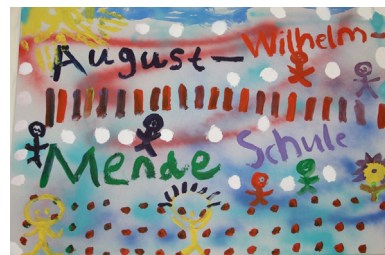 August-Wilhelm-
Mende Schule